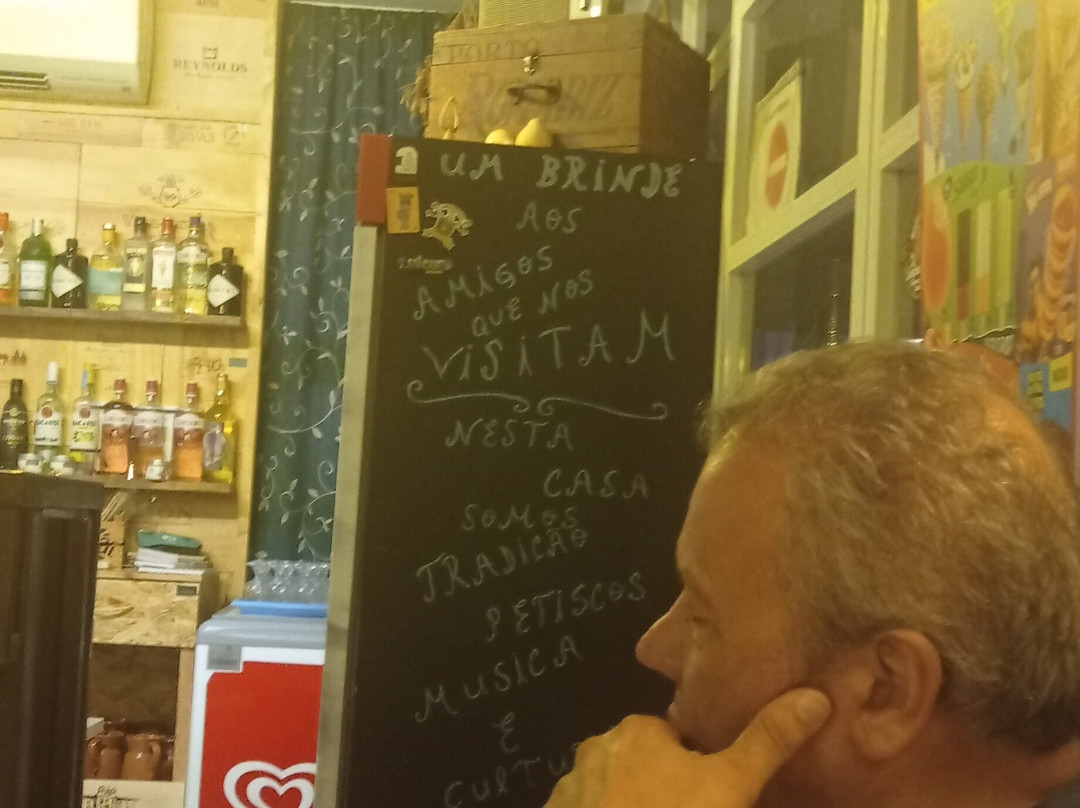 REYNOLDS
PORTO
UM BRINDE
AOS
AMIGOS
QUE NOS
VISITAM
NESTA
CASA
SOMOS
TRADICÃO
PETISCOS
MUSICA
E
CULTU
BACARDI
BACARDI